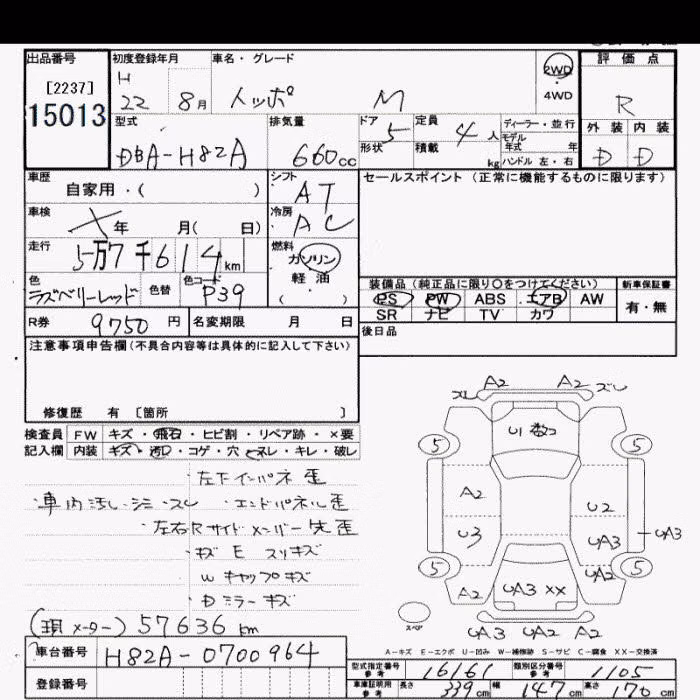 出品番号 初度登録年月 車名・グレード 2WD 評価点
[2237] H
15013 22 8月 トッポ M ・4WD R
型式 排気量 ドア 5 定員 4人 ディーラー・並行 外装 内装
DBA-H82A 660cc 形状 積載 kg モデル年式 年 D D
ハンドル 左・右
車歴 シフト セールスポイント (正常に機能するものに限ります)
自家用・( ) AT
車検 冷房
年 月( 日) AC
走行 燃料
5万7千614km ガソリン
・
色 色替 色コード 軽油 装備品 (純正品に限り○をつけてください) 新車保証書
ラズベリーレッド P39 ( ・ ) PS PW ABS エアB AW 有・無
R券 9750円 名変期限 月 日 SR ナビ TV カワ
後日品
注意事項申告欄 (不具合内容等は具体的に記入して下さい)
修復歴 有 〔箇所 〕
検査員 FW キズ・飛石・ヒビ割・リペア跡・×要
記入欄 内装 キズ・汚レ・コゲ・穴・スレ・キレ・破レ
左下インパネ歪
・車内汚レ・シミ・スレ ・エンドパネル歪
・左右Rサイドメンバー先歪
・キズ E スリキズ
W キャップキズ
・Dミラーキズ
(現メーター) 57636km
車台番号 H82A-0700964
登録番号
A2 A2
ズレ ズレ
5 U数コ 5
A2 U2
U3 UA3 UA3
5 5
A2 UA3 XX UA2
スペア
UA3 UA2 A2
A-キズ E-エクボ U-凹み W-補修跡 S-サビ C-腐食 XX-交換済
型式指定番号 参考 16161 類別区分番号 参考 1105
車庫証明用 参考 長さ 339cm 幅 147cm 高さ 170cm